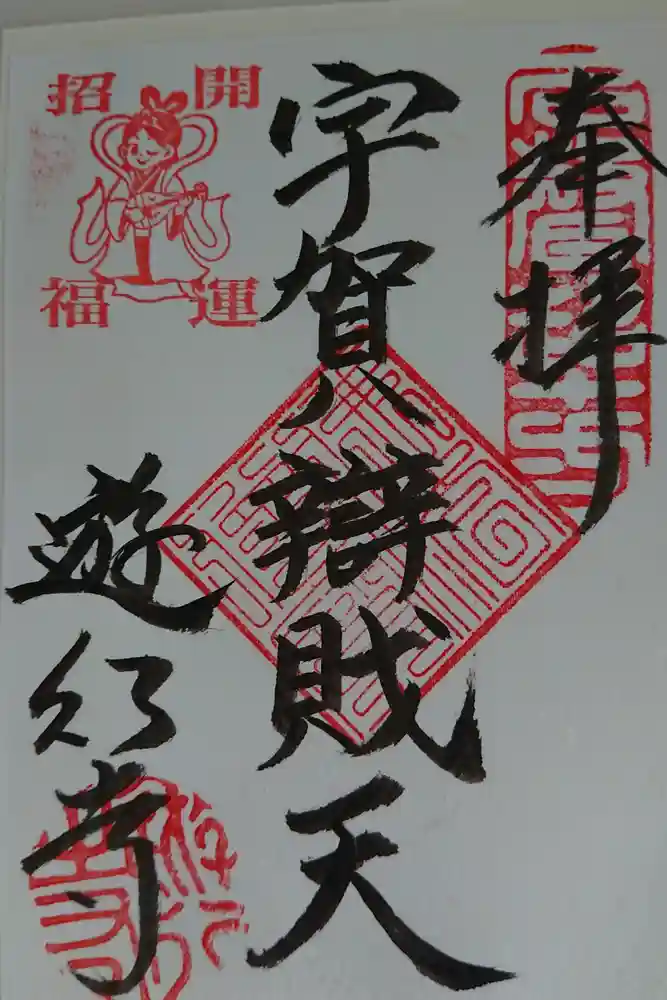 奉拝
宇賀辯財天
開運
招福
遊行寺